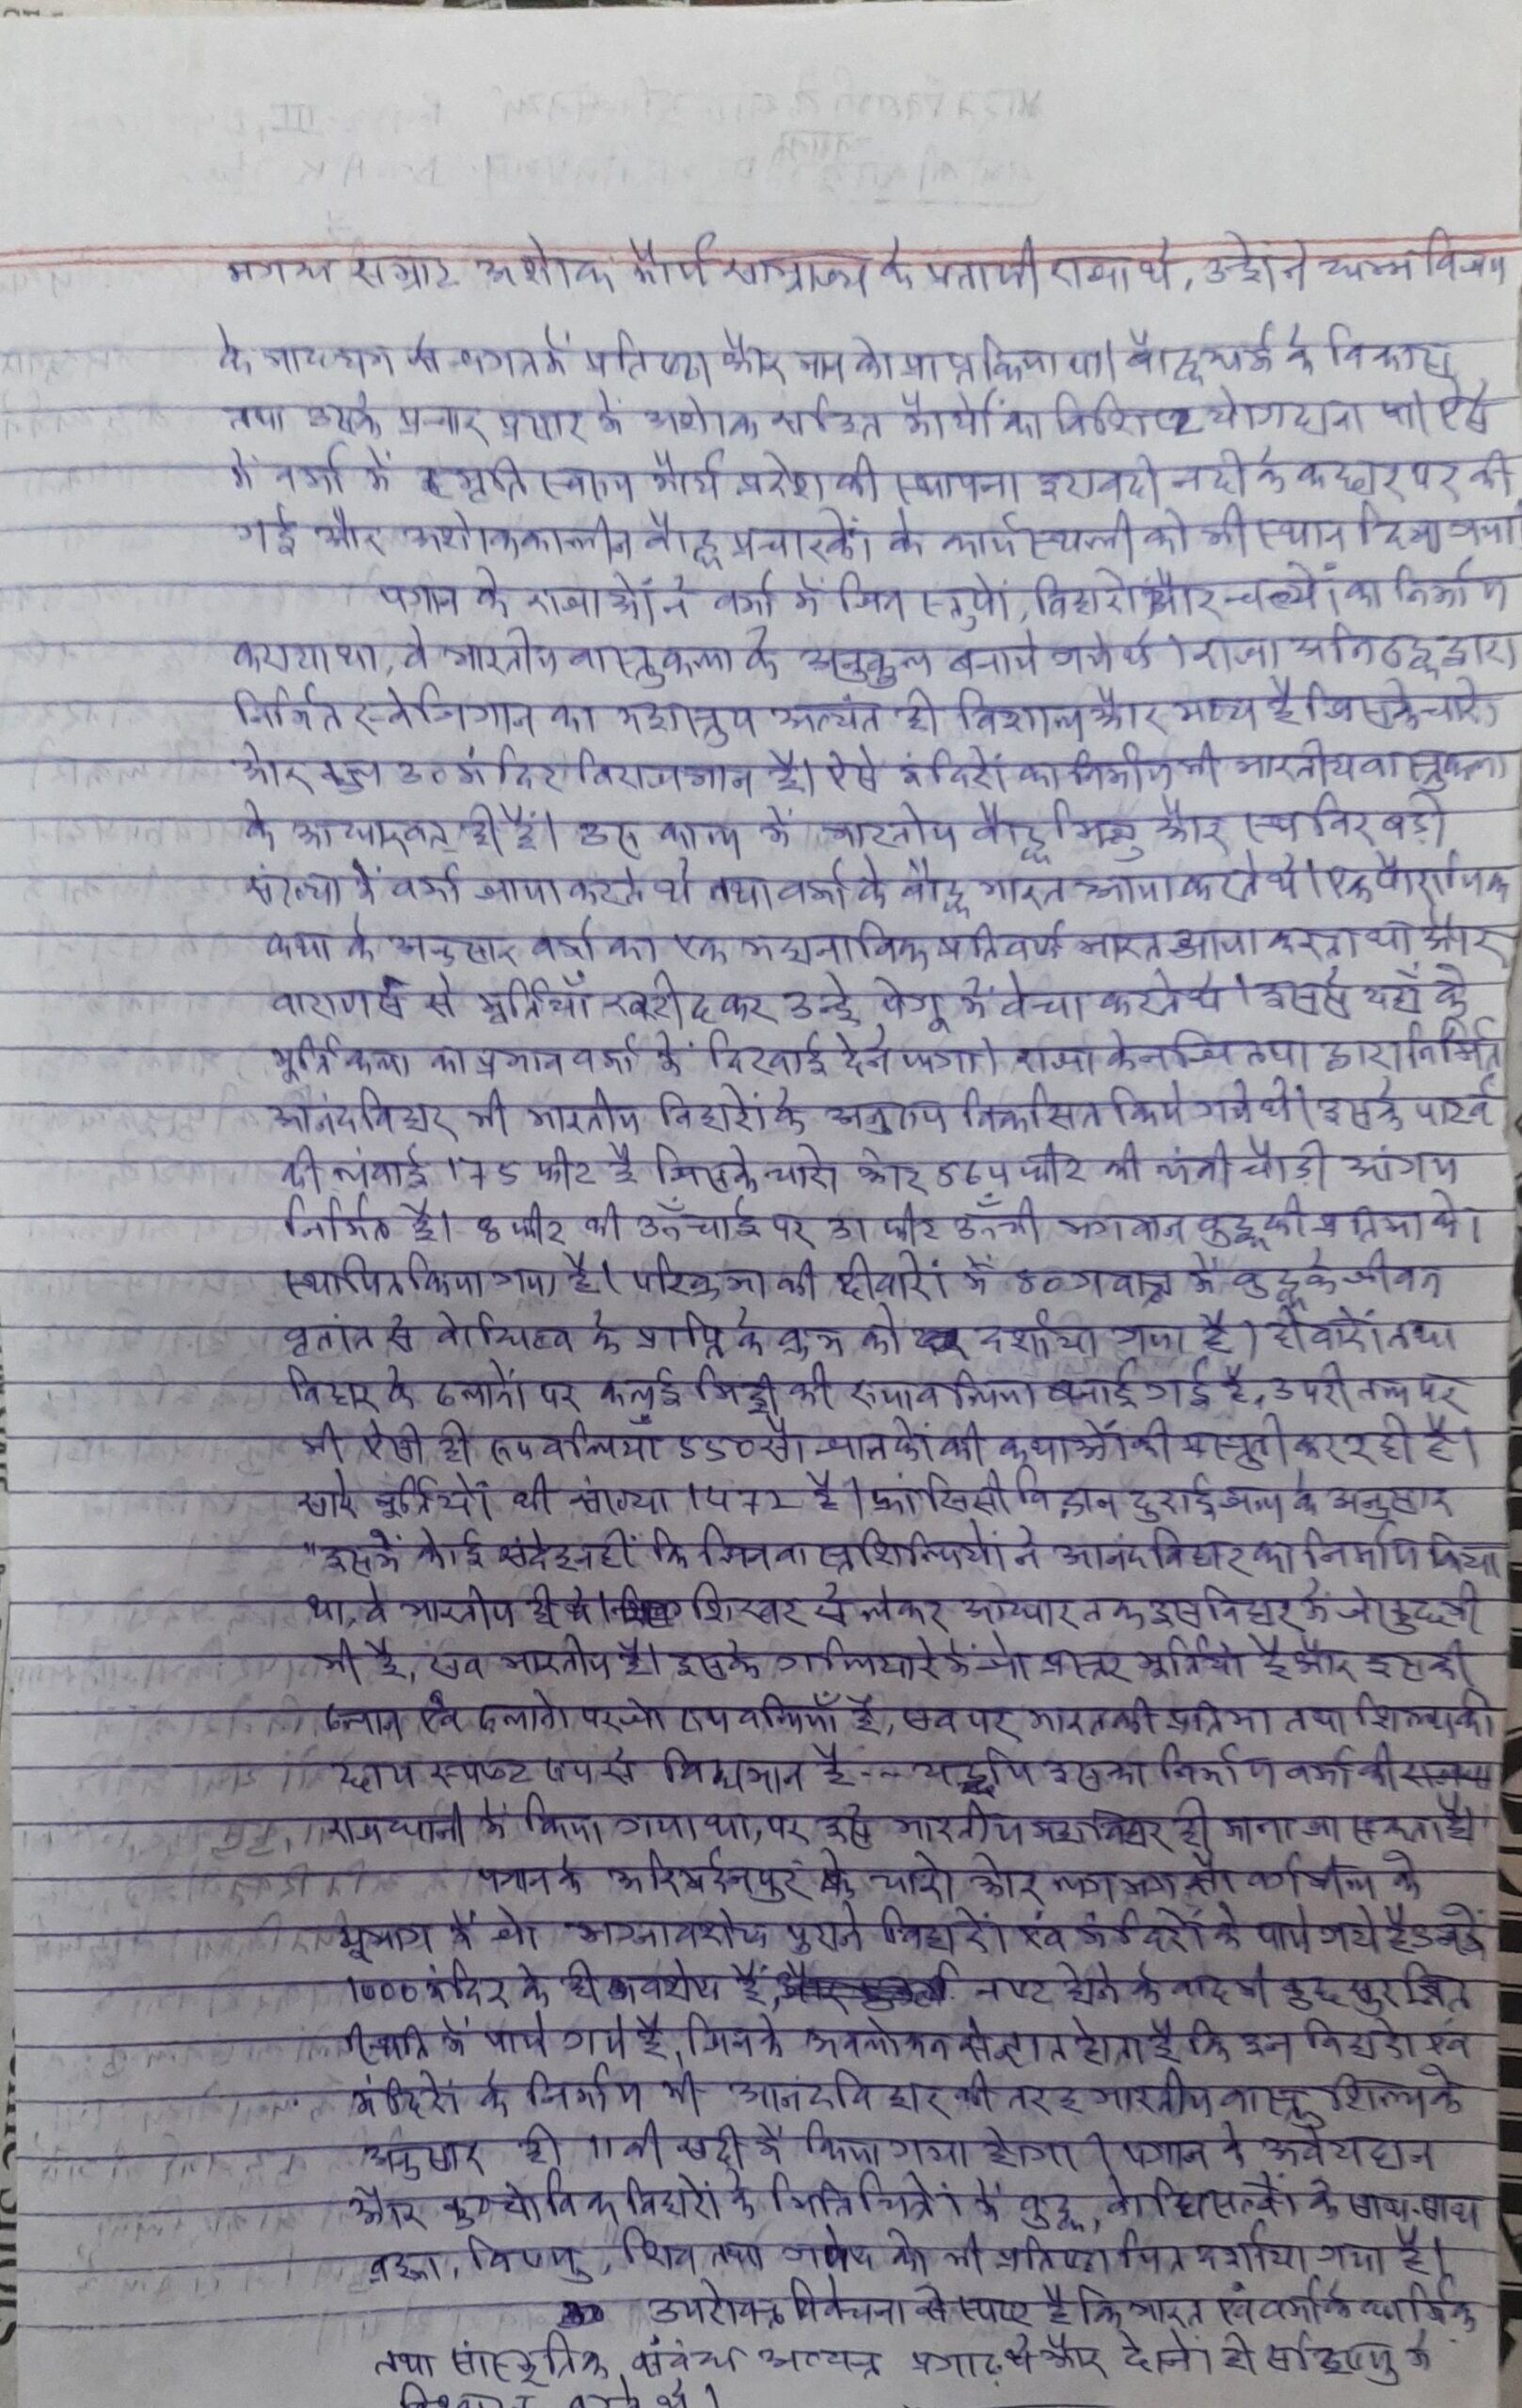 मगध सम्राट अशोक मौर्य साम्राज्य के प्रतापी राजा थे, उन्होंने धम्म विजय
के माध्यम से जगत में प्रतिष्ठा और नाम को प्राप्त किया था। बौद्ध धर्म के विकास
तथा उसके प्रचार प्रसार में अशोक सहित मौर्यो का विशिष्ट योगदान था। ऐसे
में वर्मा में स्मृति स्वरूप मौर्य प्रदेश की स्थापना इरावदी नदी के कछार पर की
गई और अशोककालीन बौद्ध प्रचारकों के कार्य स्थली को भी स्थान दिया गया।
पगान के राजाओं ने वर्मा में जिन स्तुपों, विहारों और चैत्यों का निर्माण
कराया था, वे भारतीय वास्तुकला के अनुकुल बनाये गये थे। राजा अनिरुद्ध द्वारा
निर्मित स्वेजिगान का महास्तुप अत्यंत ही विशाल और भव्य है जिसके चारो
ओर कुल 30 मंदिर विराजमान है। ऐसे मंदिरों का निर्माण भी भारतीय वास्तुकला
के आधारवत् ही हैं। उस काल में भारतीय बौद्ध भिक्षु और स्थविर बड़ी
संख्या में वर्मा जाया करते थे तथा वर्मा के बौद्ध भारत आया करते थे। एक पौराणिक
कथा के अनुसार वर्मा का एक महानाविक प्रतिवर्ष भारत आया करता था और
वाराणसी से मूर्तियाँ खरीदकर उन्हे पेगू में बेचा करते थे। इससे यहाँ के
मूर्तिकला का प्रभाव वर्मा में दिखाई देने लगा। राजा केनजित्था द्वारा निर्मित
आनंदविहार भी भारतीय विहारों के अनुरुप विकसित किये गये थे। इसके पार्श्व
की लंबाई 175 फीट है जिसके चारो ओर 564 फीट की लंबी चौड़ी आंगन
निर्मित है। 8 फीट की ऊँचाई पर 31 फीट ऊँची भगवान बुद्ध की प्रतिमा को
स्थापित किया गया है। परिक्रमा की दीवारों में 80 गवाक्ष में बुद्ध के जीवन
वृतांत से बोधित्व के प्राप्ति के क्रम को दर्शाया गया है। दीवारों तथा
विहार के ढलानों पर कलई मिट्टी की रुपावलियां बनाई गई है, उपरी तल पर
भी ऐसी ही रुपवलियाँ 550 जातकों की कथाओं की प्रस्तुती कर रही है।
सारे मूर्तियों की संख्या 1472 है। फ्रांसिसी विद्वान दुराईजल के अनुसार
"इसमें कोई संदेह नहीं कि जिन वास्तुशिल्पियों ने आनंदविहार का निर्माण किया
था, वे भारतीय ही थे। शिखर से लेकर आधार तक इस विहार में जो कुछ भी
भी है, सब भारतीय है। इसके गलियारे में जो प्रस्तर मूर्तियां है और इसकी
ढलान एवं ढलानो पर जो रुपवलियाँ है, सब पर भारत की प्रतिभा तथा शिल्प की
छाप स्पष्ट रुप से विद्यमान है --- यद्यपि इसका निर्माण वर्मा की
राजधानी में किया गया था, पर इसे भारतीय महाविहार ही माना जा सकता है।"
पगान के अरिमर्दनपुर के चारो ओर लगभग सौ वर्गमील के
भूभाग में जो भग्नावशेष पुराने विहारों एवं मंदिरों के पाये गये है उनमें
1000 मंदिर के ही अवशेष हैं, नष्ट होने के बाद भी कुछ सुरक्षित
स्थिति में पाये गये है, जिनके अवलोकन से ज्ञात होता है कि इन विहारो एवं
मंदिरों के निर्माण भी आनंदविहार की तरह भारतीय वास्तु शिल्प के
अनुसार ही 11वी सदी में किया गया होगा। पगान के अवेयदान
और विहारों के भित्तिचित्रों में बुद्ध, बोधिसत्वों के साथ-साथ
ब्रह्मा, विष्णु, शिव तथा गणेश को भी प्रतिष्ठापित दर्शाया गया है।
उपरोक्त विवेचना से स्पष्ट है कि भारत एवं वर्मा के धार्मिक
तथा सांस्कृतिक संबंध अत्यन्त प्रगाढ़ थे और दोनों ही सहिष्णु के